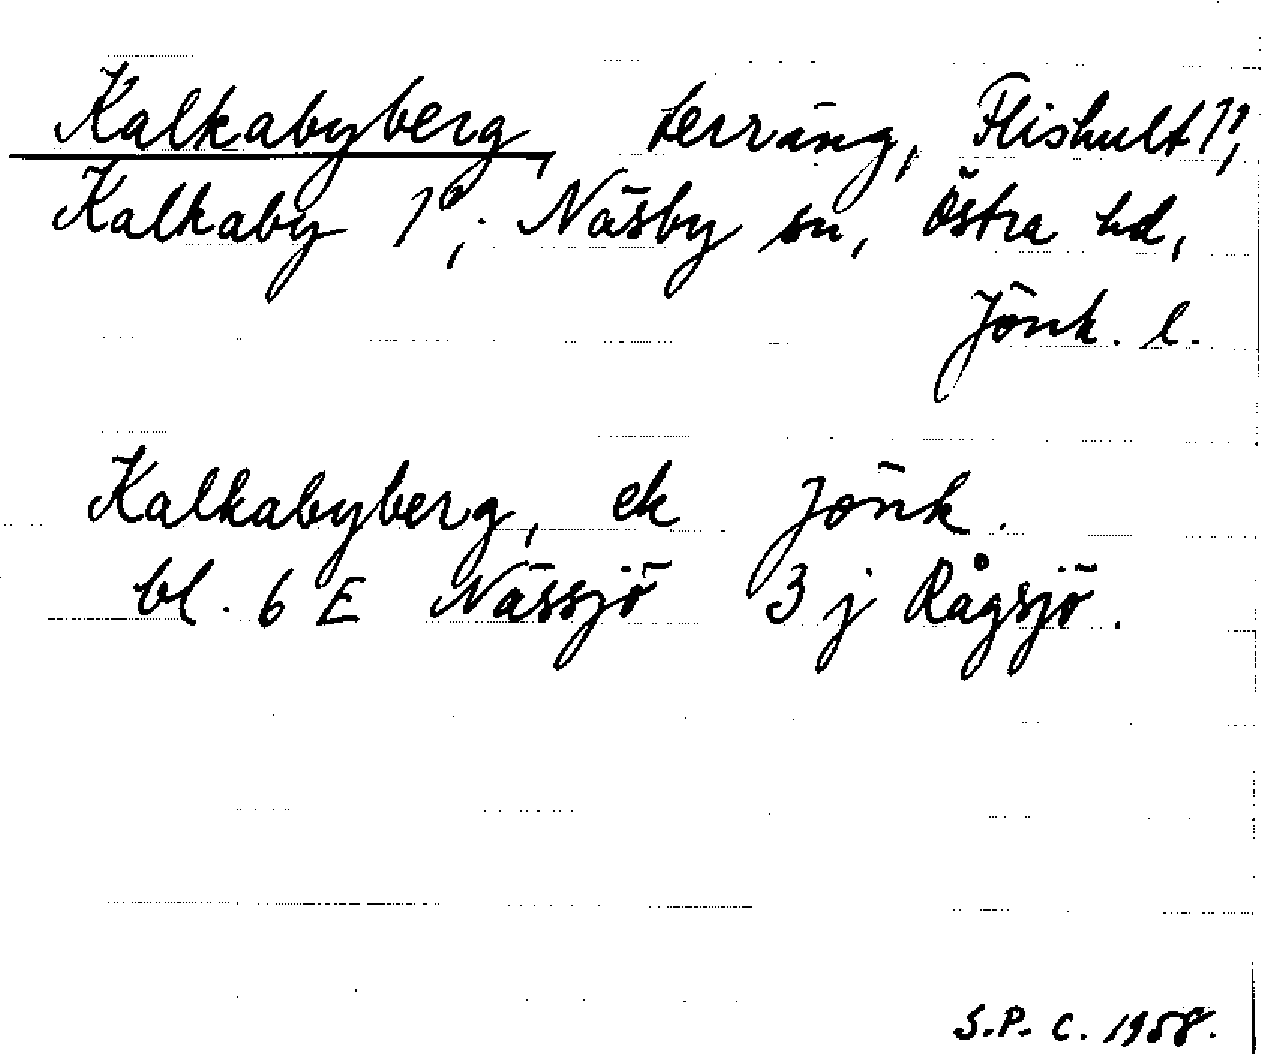 Kalkabyberg, terräng, Flishult 1¹,
Kalkaby 1⁰; Näsby sn, Östra hd,
Jönk. l.
Kalkabyberg, ek Jönk.
bl. 6 E Nässjö 3 j Rågsjö.
S.P. C. 1958.